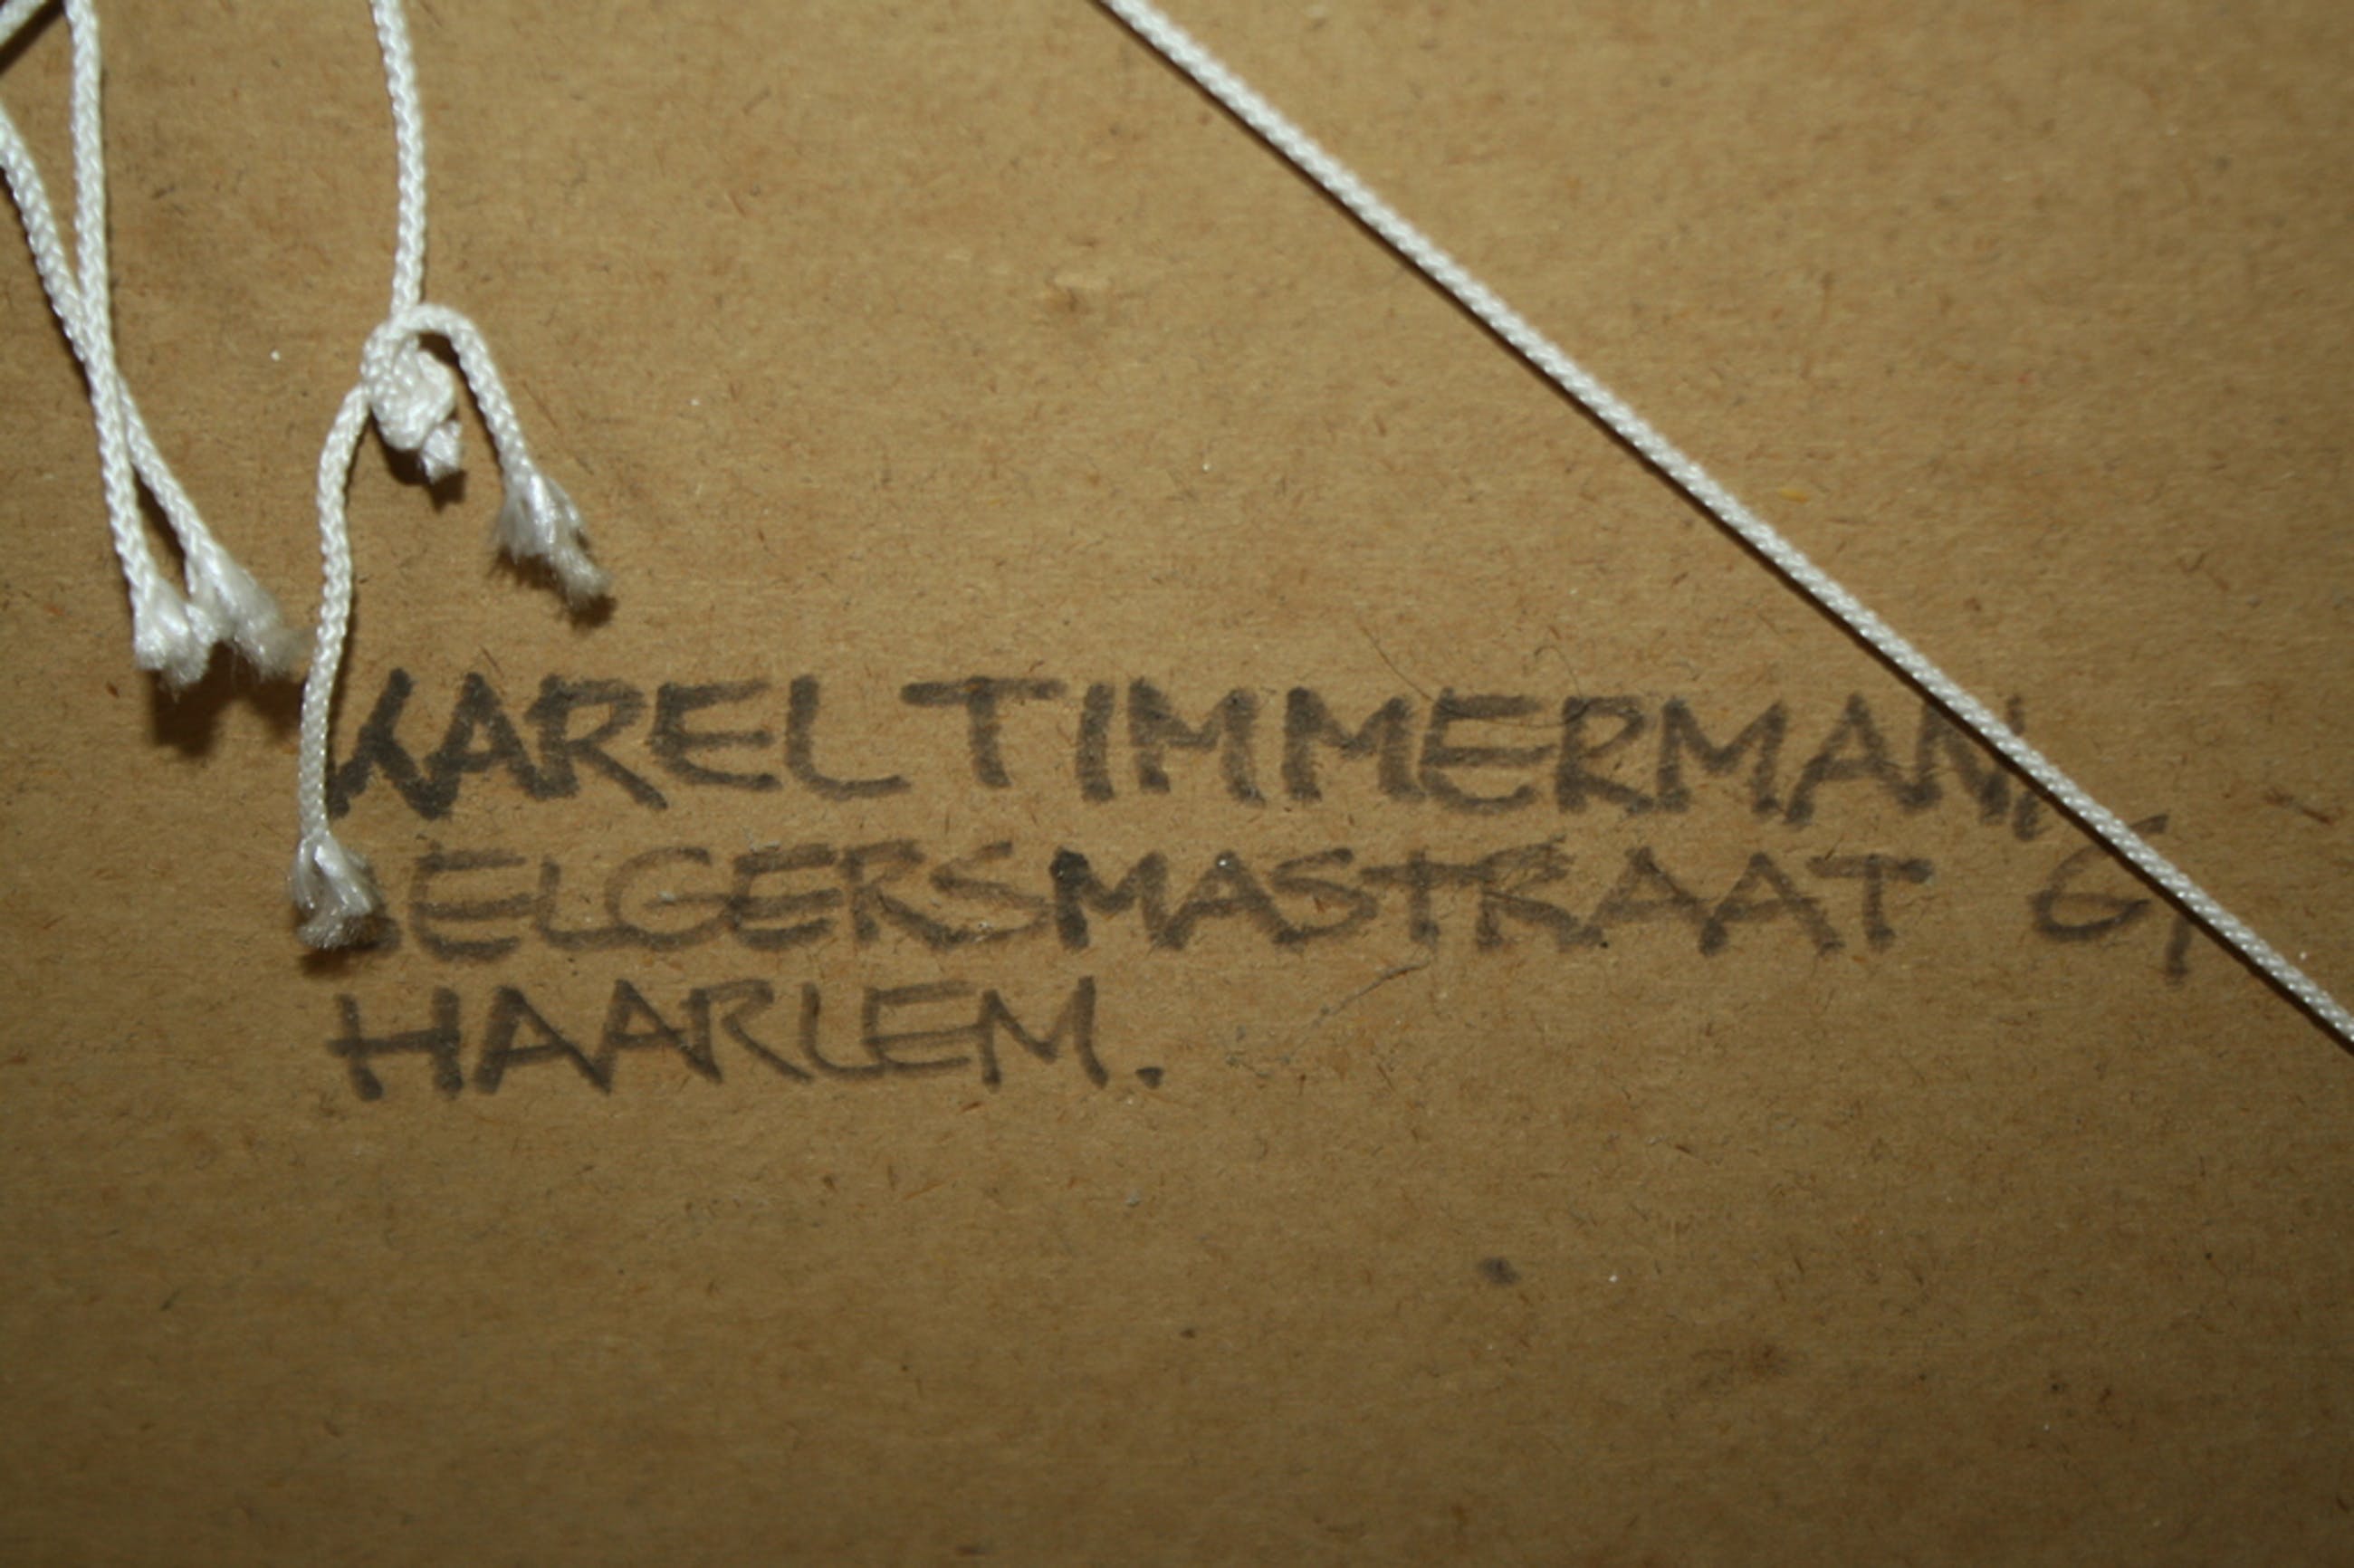 KAREL TIMMERMAN,
SELGERSMASTRAAT 6,
HAARLEM.